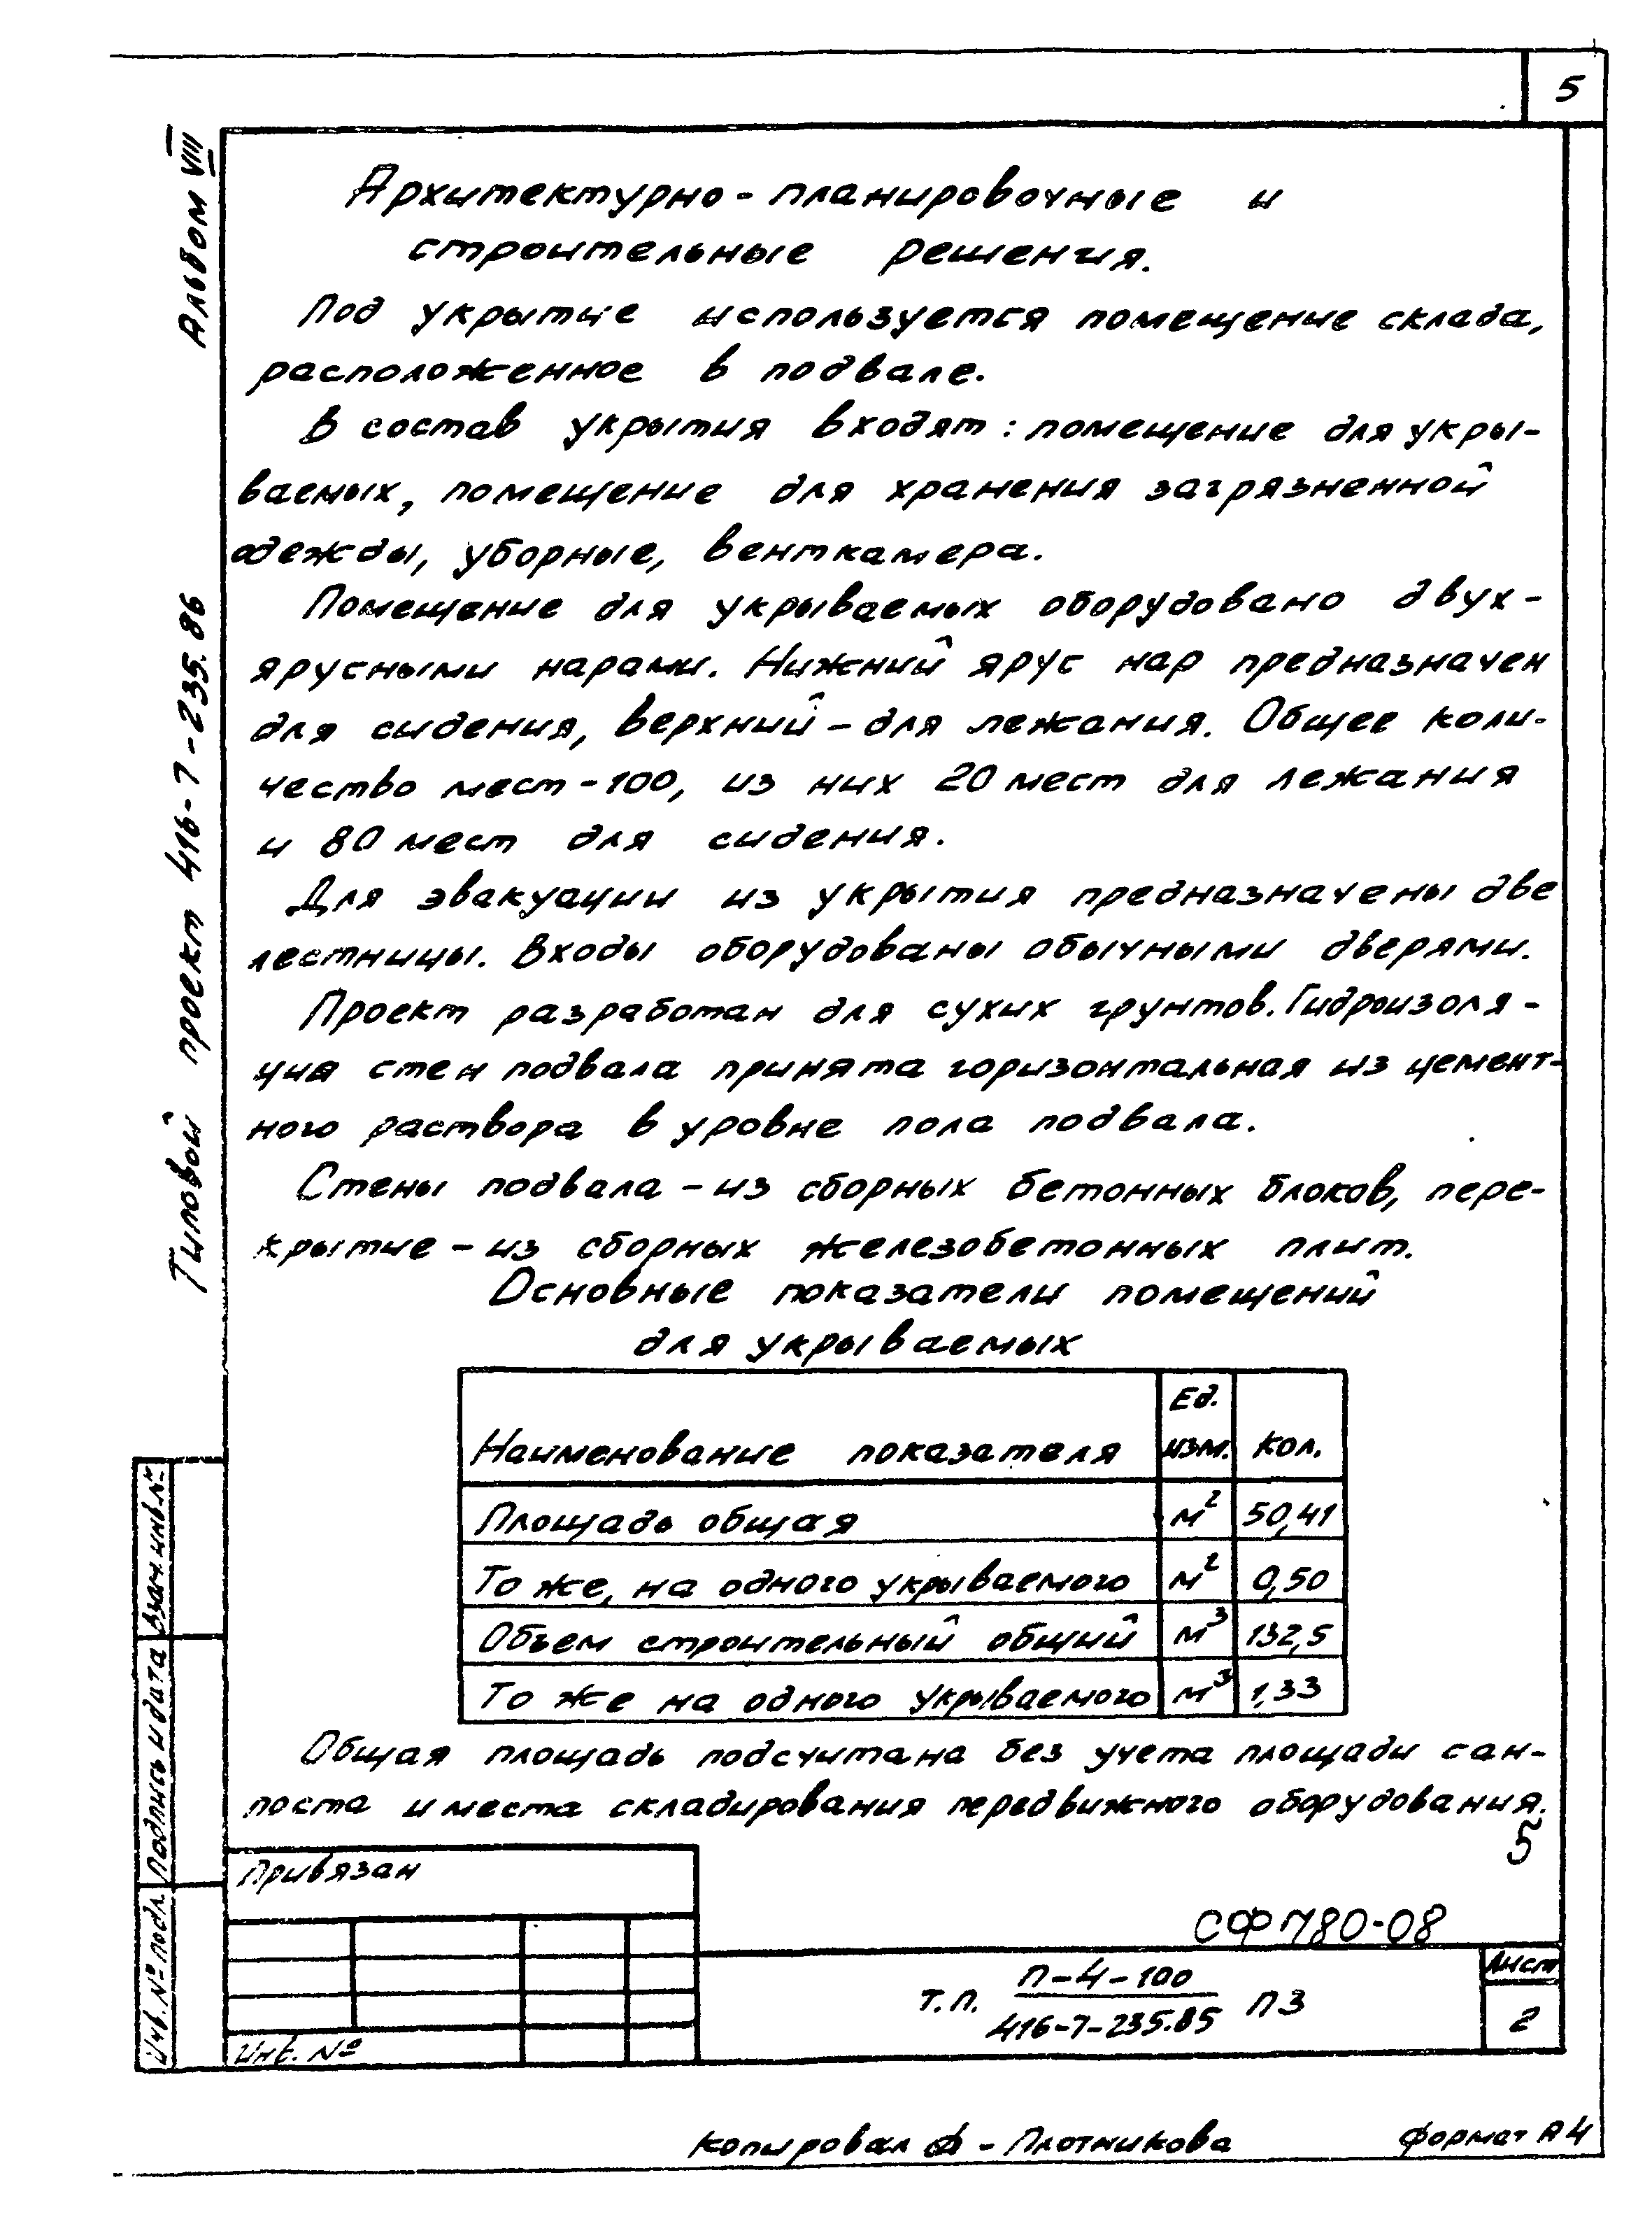 5
Альбом VIII
Типовой проект 416-7-235.86
Архитектурно-планировочные и
строительные решения.
Под укрытие используется помещение склада,
расположенное в подвале.
В состав укрытия входят: помещение для укры-
ваемых, помещение для хранения загрязненной
одежды, уборные, венткамера.
Помещение для укрываемых оборудовано двух-
ярусными нарами. Нижний ярус нар предназначен
для сидения, верхний - для лежания. Общее коли-
чество мест - 100, из них 20 мест для лежания
и 80 мест для сидения.
Для эвакуации из укрытия предназначены две
лестницы. Входы оборудованы обычными дверями.
Проект разработан для сухих грунтов. Гидроизоля-
ция стен подвала принята горизонтальная из цемент-
ного раствора в уровне пола подвала.
Стены подвала - из сборных бетонных блоков, пере-
крытие - из сборных железобетонных плит.
Основные показатели помещений
для укрываемых
Наименование показателя Ед. изм. Кол.
Площадь общая м² 50,41
То же, на одного укрываемого м² 0,50
Объем строительный общий м³ 132,5
То же на одного укрываемого м³ 1,33
Общая площадь подсчитана без учета площади сан-
поста и места складирования передвижного оборудования.
5
Взам. инв. №
Подпись и дата
Инв. № подл.
Привязан
Инв. №
СФ 780-08
т.п. П-4-100 ПЗ
416-7-235.85
Лист
2
Копировал - Плотникова
Формат А4